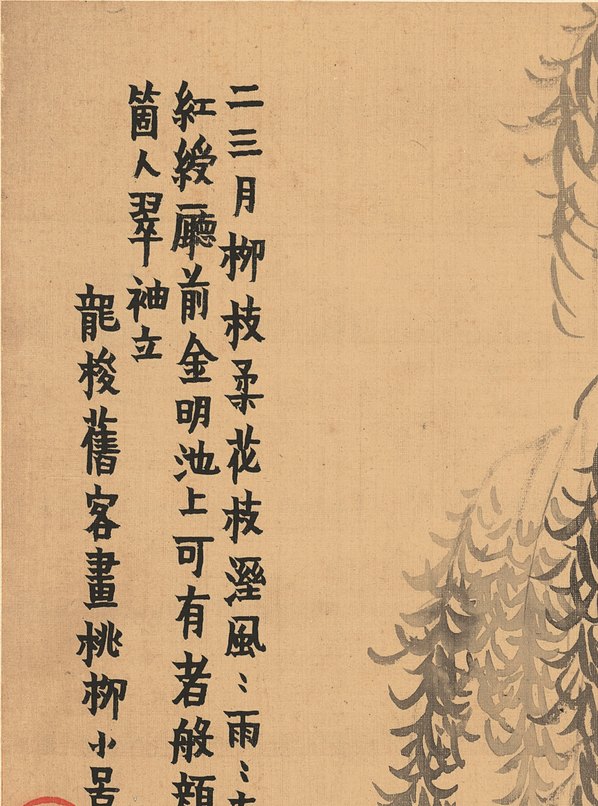 二三月柳枝柔花枝溼風〻雨〻
紅綬廳前金明池上可有者般
箇人翠袖立
龍梭舊客畫桃柳小